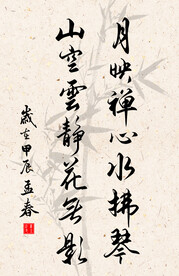 月映禅心水拂琴
山空雲靜花無影
歲在甲辰孟春